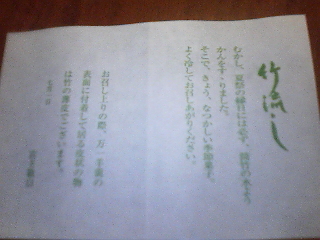 竹流し
むかし、夏祭の縁日には必ず、露竹の水よう
かんをすゝりました。
そこで、きょう、なつかしい水御菓子、
よく冷してお召しあがりください。
お召し上りの際、万一羊羹の
表面に付着して居る皮状の物
は竹の薄皮でございます。